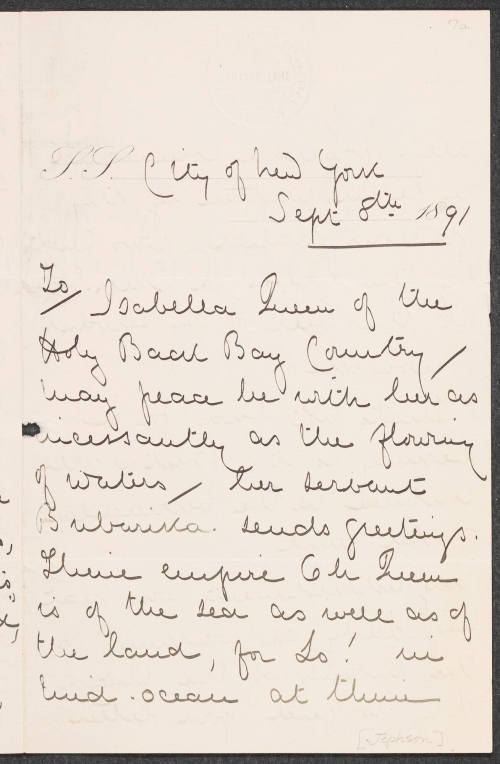 7a
S.S. City of New York
Sept 8th 1891
To/ Isabella Queen of the
Holy Back Bay Country/
May peace be with her as
incessantly as the flowing
of waters/ Her servant
Bubarika sends greetings.
Thine empire Oh Queen
is of the sea as well as of
the land, for Lo! in
mid-ocean at thine
[Jephson]